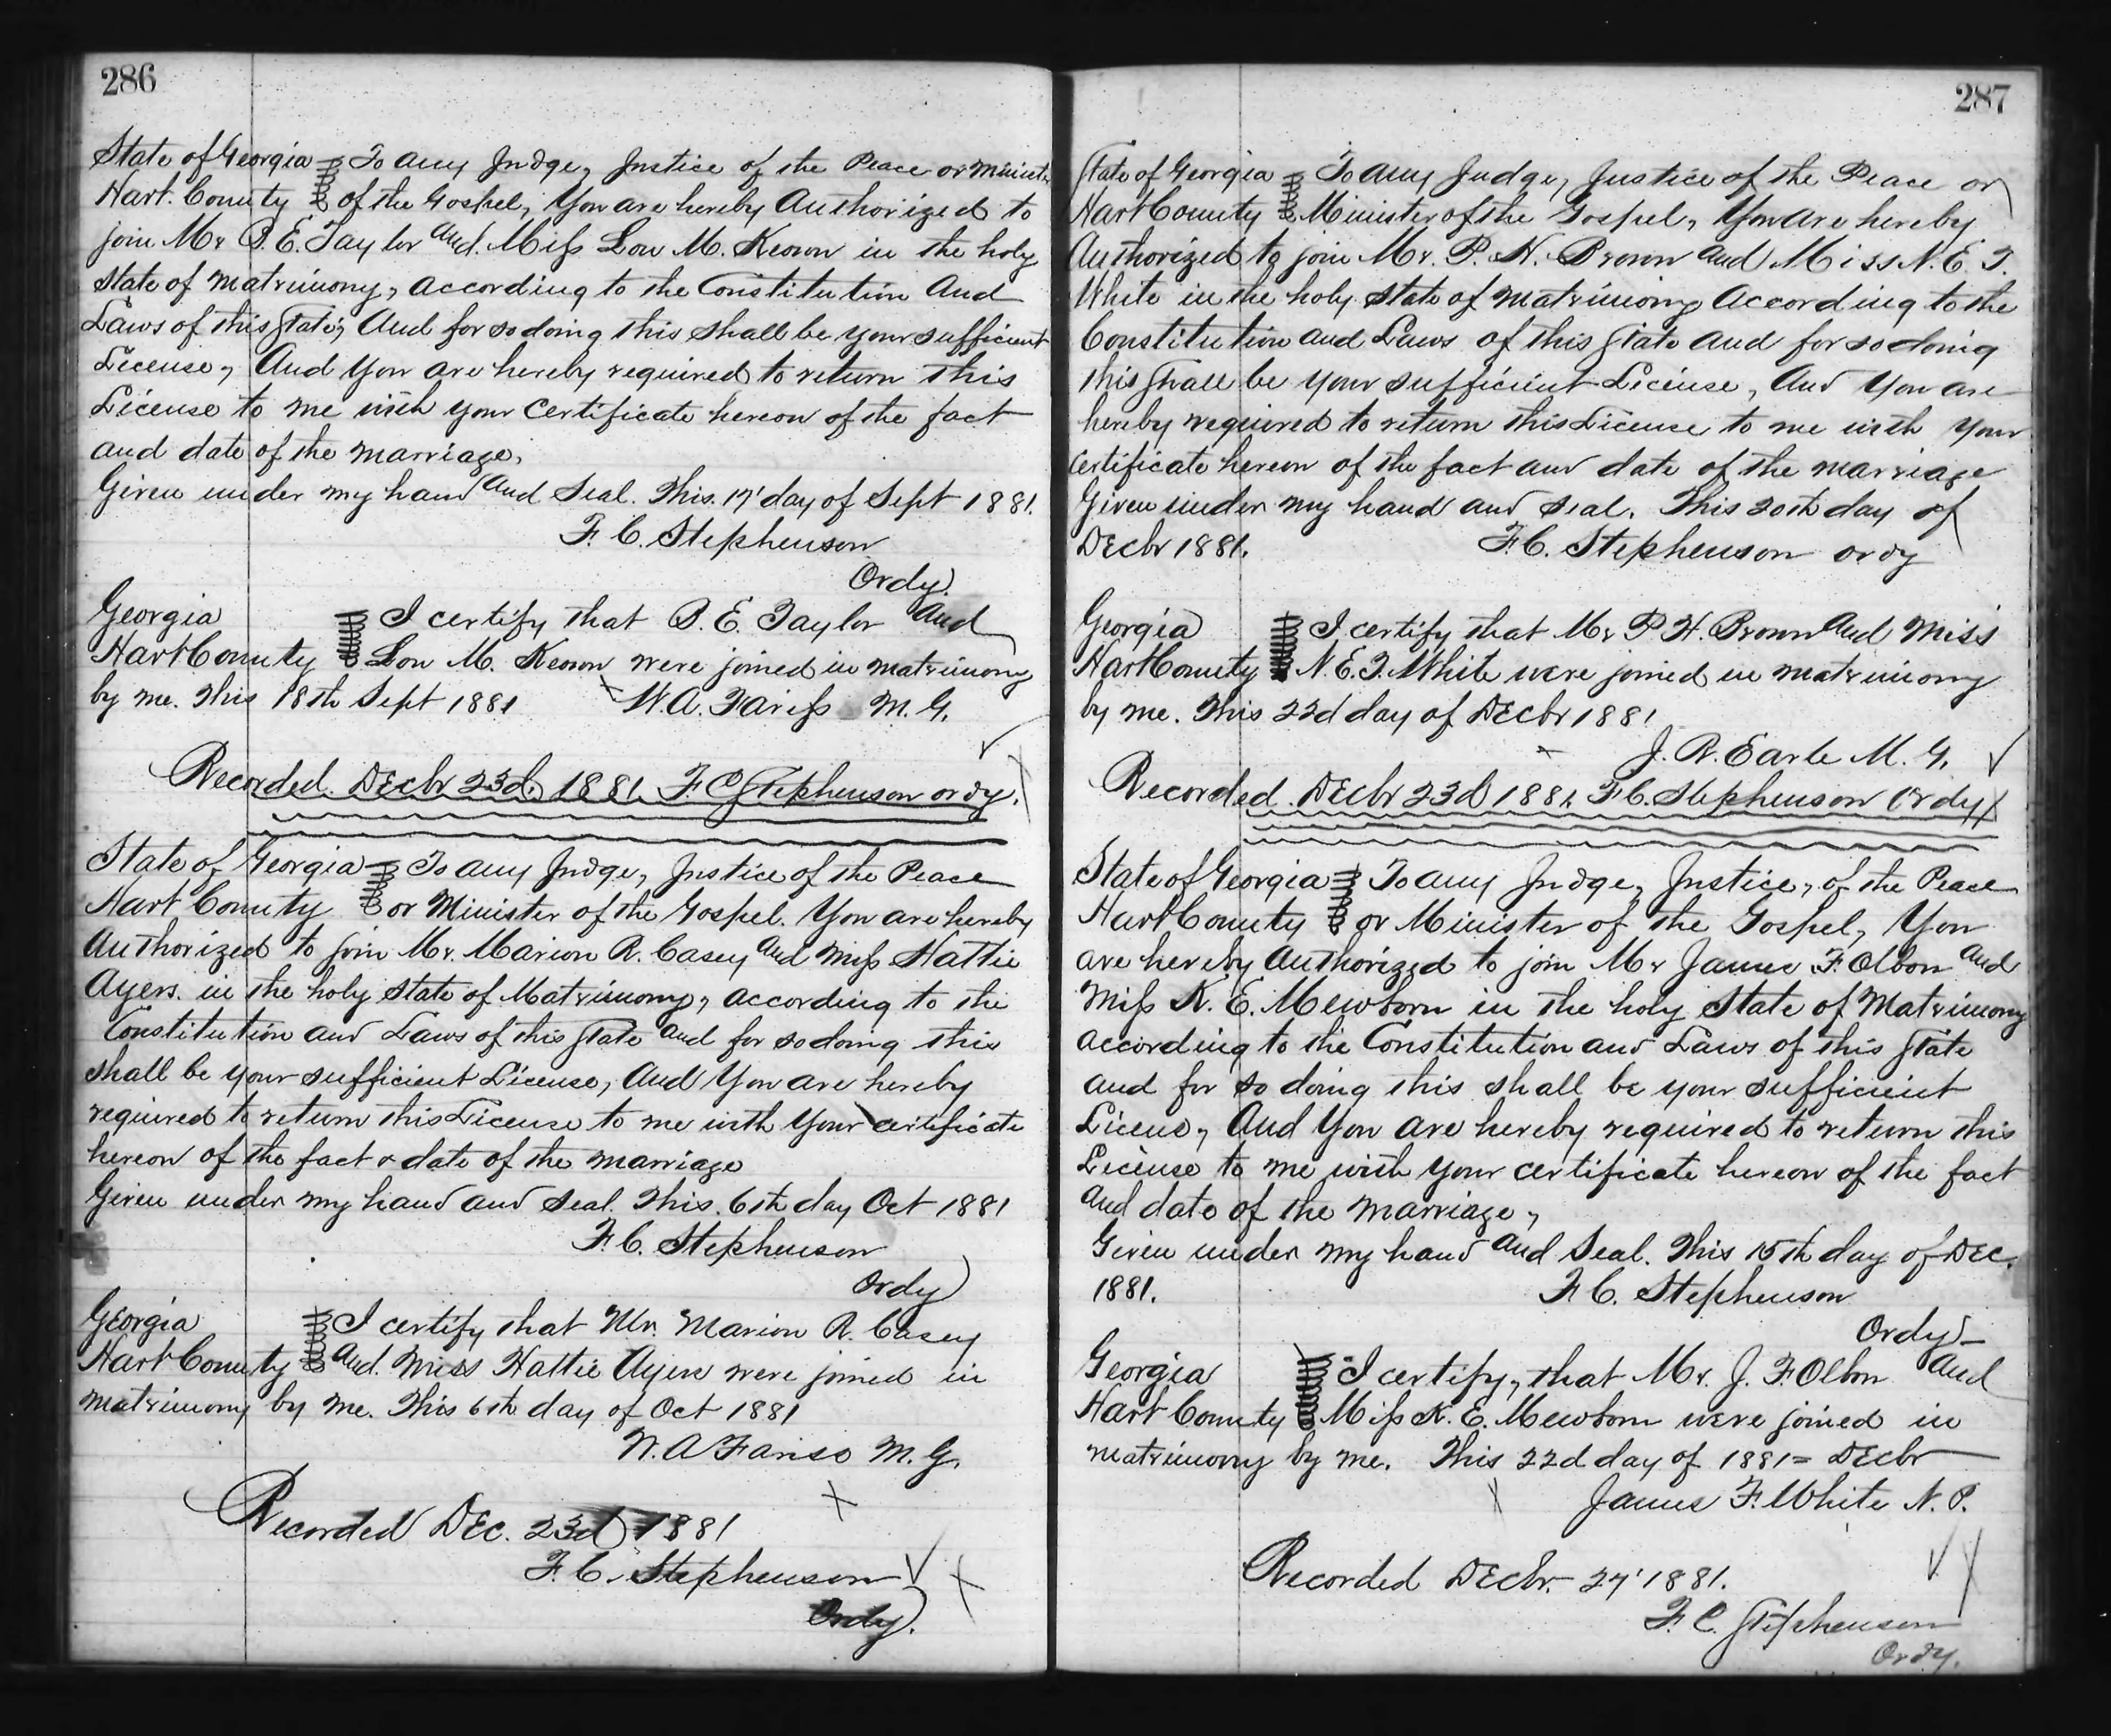 286
State of Georgia To any Judge, Justice of the Peace or Minister
Hart County of the Gospel, You are hereby Authorized to
join Mr B. E. Taylor and Miss Lou M. Keown in the holy
State of matrimony, according to the Constitution And
Laws of this State, And for so doing this shall be your sufficient
License, And you are hereby required to return this
License to me with your certificate hereon of the fact
and date of the marriage.
Given under my hand and Seal. This. 17' day of Sept 1881.
F. C. Stephenson
Ordy.
Georgia I certify that B. E. Taylor and
Hart County Lou M. Keown were joined in matrimony
by me. This 18th Sept 1881 W. A. Fariss M. G.
Recorded. Decbr 23d, 1881. F. C. Stephenson ordy.
State of Georgia To any Judge, Justice of the Peace
Hart County or Minister of the Gospel. You are hereby
Authorized to join Mr. Marion R. Casey and Miss Hattie
Ayers. in the holy State of Matrimony, according to the
Constitution and Laws of this State and for so doing this
shall be your sufficient License, And You are hereby
required to return this License to me with your certificate
hereon of the fact & date of the marriage
Given under my hand and Seal. This. 6th day Oct 1881
F. C. Stephenson
Ordy
Georgia I certify that Mr. Marion R. Casey
Hart County and. Miss Hattie Ayers were joined in
matrimony by me. This 6th day of Oct 1881
W. A Fariss M. G.
Recorded Dec. 23d 1881
F. C. Stephenson
Ordy.
287
State of Georgia To any Judge, Justice of the Peace or
Hart County Minister of the Gospel, You are hereby
Authorized to join Mr. P. H. Brown and Miss N. E. T.
White in the holy State of matrimony According to the
Constitution and Laws of this State and for so doing
this shall be your sufficient License, And you are
hereby required to return this License to me with your
certificate hereon of the fact and date of the marriage
Given under my hand and seal. This 20th day of
Decbr 1881. F. C. Stephenson ordy
Georgia I certify that Mr P H. Brown and Miss
Hart County N. E. T. White were joined in matrimony
by me. This 22d day of Decbr 1881
J. R. Earle M. G.
Recorded. Decbr 23d 1881. F. C. Stephenson Ordy
State of Georgia To any Judge, Justice, of the Peace
Hart County or Minister of the Gospel, You
are hereby authorized to join Mr James F. Olbon and
Miss K. E. Mewborn in the holy State of Matrimony
according to the Constitution and Laws of this State
and for so doing this shall be your sufficient
Licens, And you are hereby required to return this
License to me with your certificate hereon of the fact
and date of the marriage,
Given under my hand and Seal. This 15th day of Dec.
1881. F. C. Stephenson
Ordy
Georgia I certify, that Mr. J. F. Olbon and
Hart County Miss K. E. Mewborn were joined in
matrimony by me. This 22d day of 1881= Decbr
James F. White N. P.
Recorded Decbr. 27' 1881.
F. C. Stephenson
Ordy.